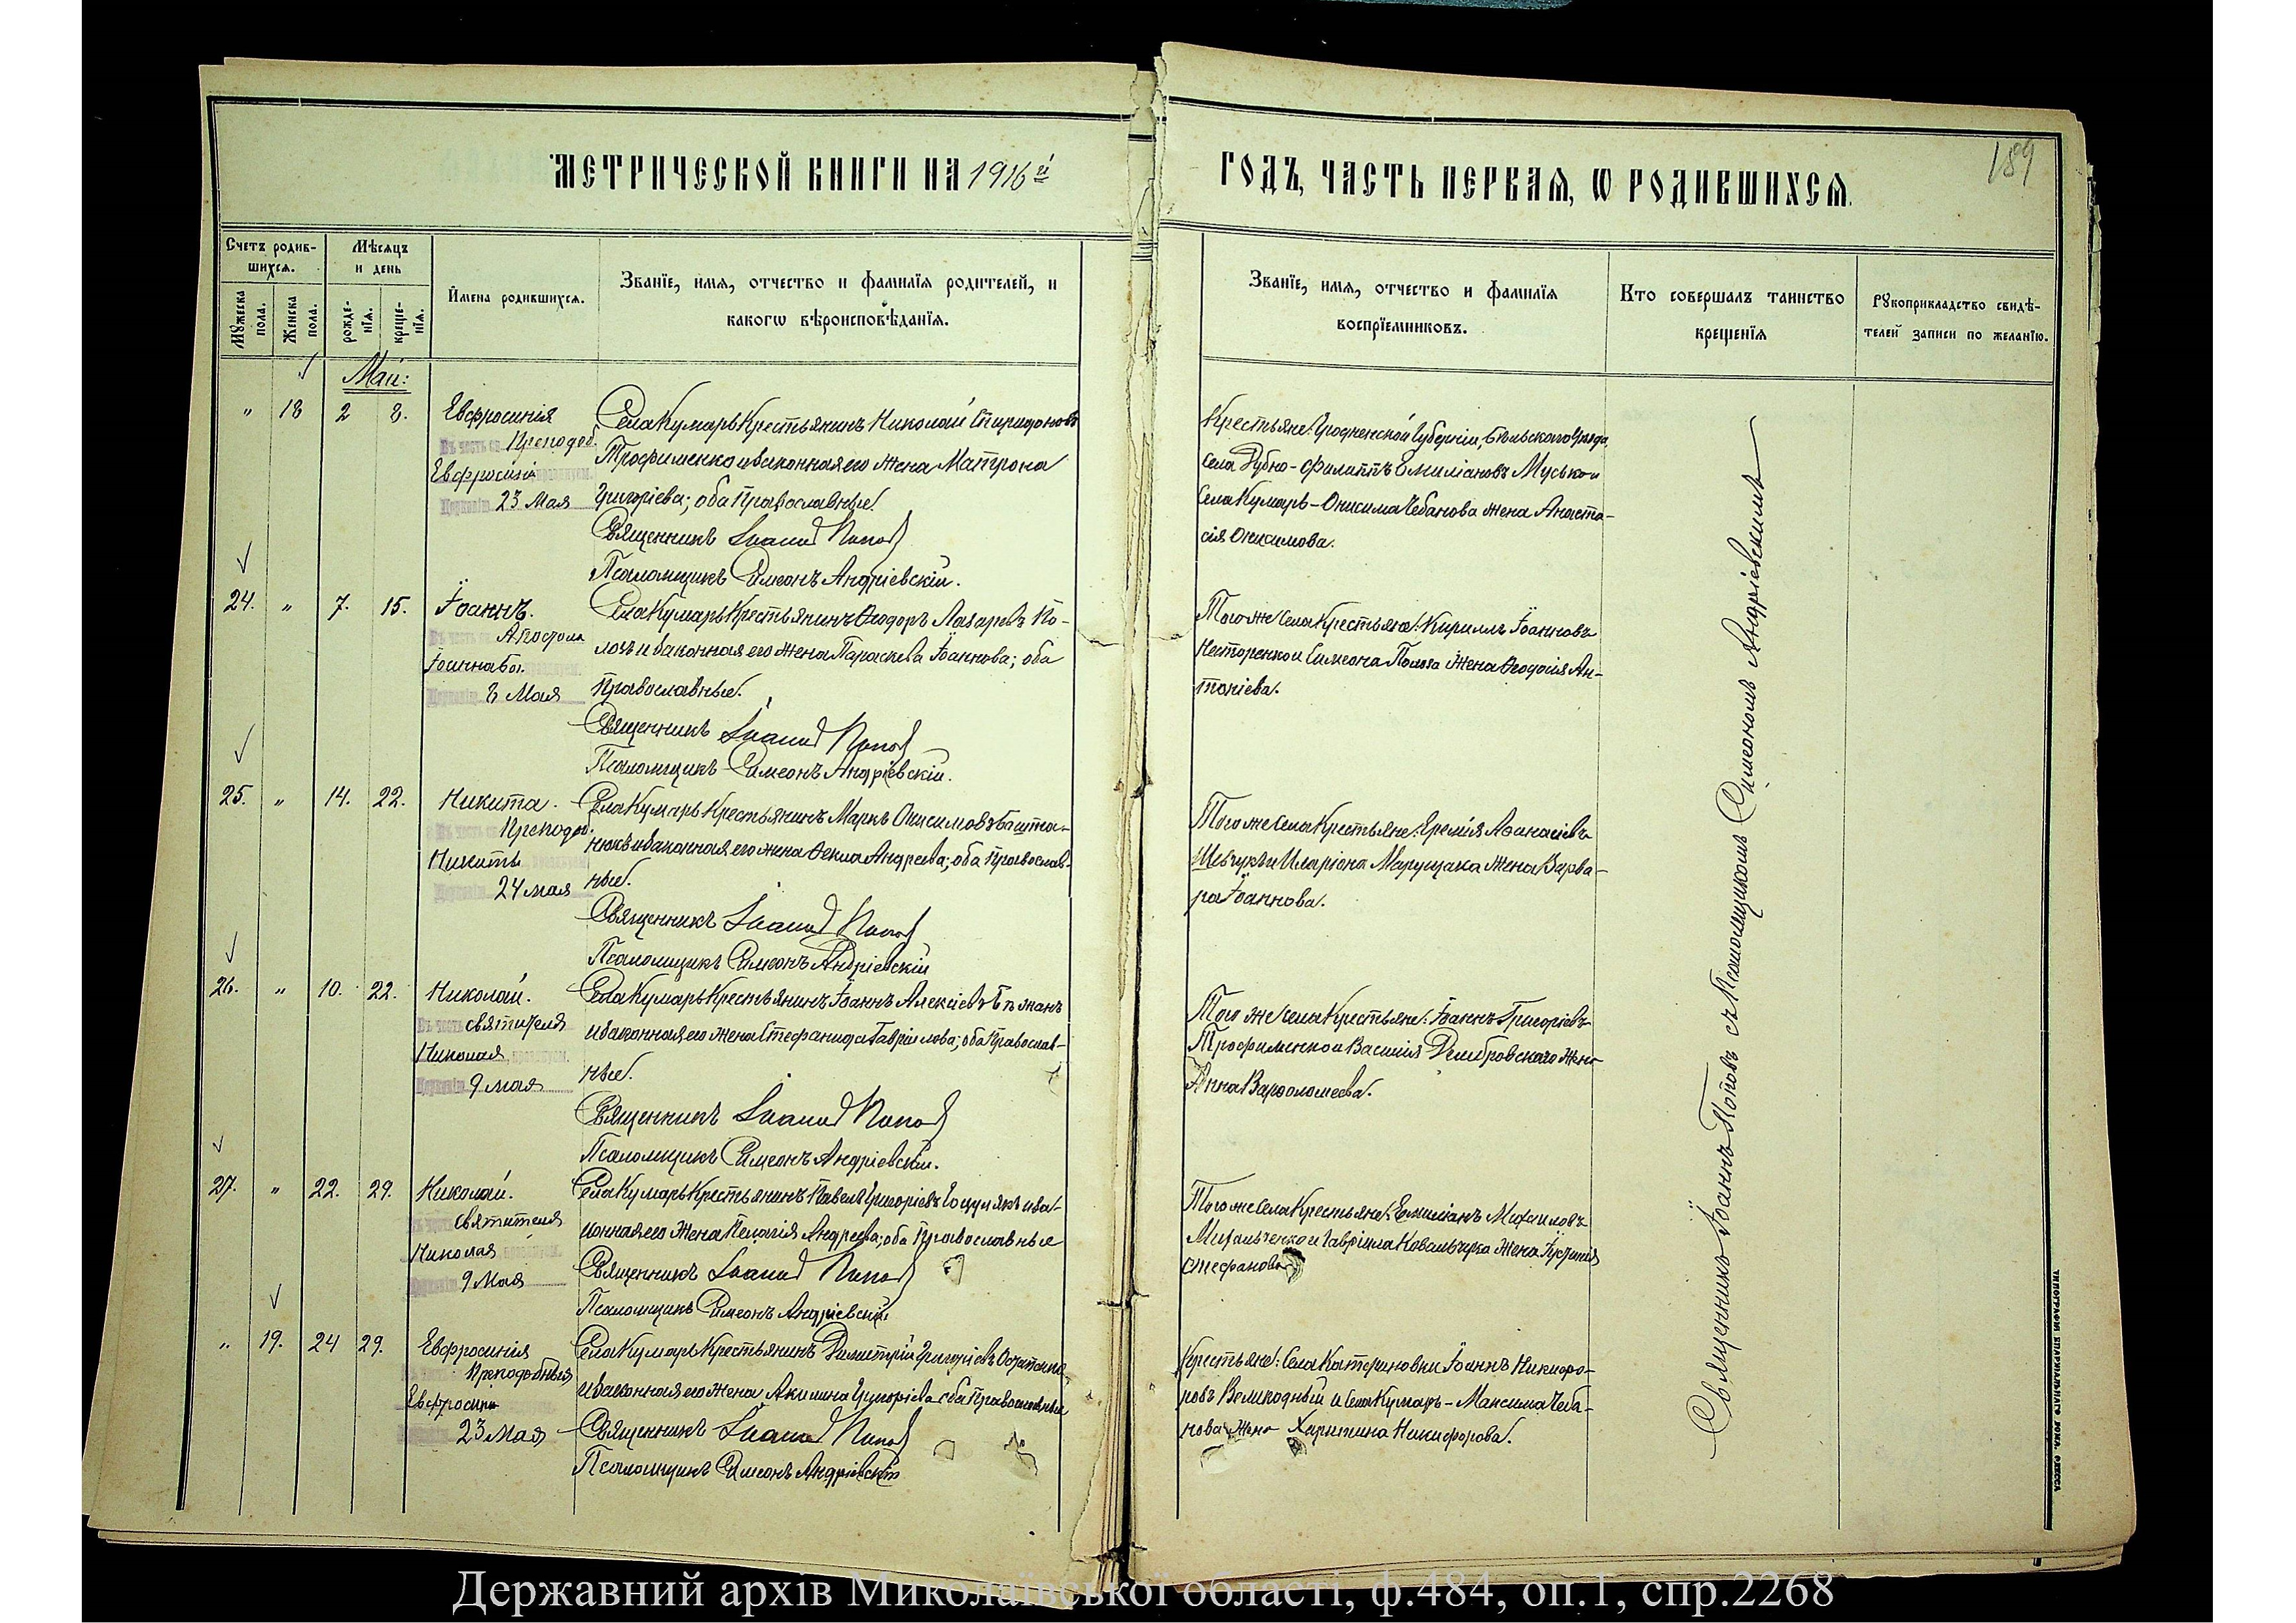 189
МЕТРИЧЕСКОЙ КНИГИ НА 1916й
ГОДЪ, ЧАСТЬ ПЕРВАЯ, Ѡ РОДИВШИХСЯ.
Счетъ родившихся.
Мѣсяцъ и день
Мужеска пола.
Женска пола.
рожденїя.
крещенїя.
Имена родившихся.
Званїе, имя, отчество и фамилїя родителей, и
какогѡ вѣроисповѣданїя.
Званїе, имя, отчество и фамилїя
воспрїемниковъ.
Кто совершалъ таинство
крещенїя
Рукоприкладство свидѣ-
телей записи по желанїю.
Май:
" 18 2 8. Евфросинія
Въ честь св. Преподоб.
Евфросиніи
23 Мая
Села Кумарь Крестьянинъ Николай Спиридоновъ
Трофименко и законная его жена Матрона
Григоріева; оба Православные.
Священникъ Іоаннъ Попов
Псаломщикъ Симеонъ Андріевскій.
Крестьяне: Гродненской Губерніи, Бѣльскаго Уѣзда
села Дубно - Филиппъ Емиліановъ Мусько и
Села Кумарь - Онисима Чебанова жена Анаста-
сія Онисимова.
24. " 7. 15. Іоаннъ.
Въ честь св. Апостола
Іоанна Бог.
8 Мая
Села Кумарь Крестьянинъ Ѳеодоръ Лазаревъ По-
лозъ и законная его жена Параскева Іоаннова; оба
Православные.
Священникъ Іоаннъ Попов
Псаломщикъ Симеонъ Андріевскій.
Того же Села Крестьяне: Кириллъ Іоанновъ
Несторенко и Симеона Полоза жена Ѳеодосія Ан-
тоніева.
25. " 14. 22. Никита.
Въ честь св. Преподоб.
Никиты
24 мая
Села Кумарь Крестьянинъ Маркъ Онисимовъ Башта-
нюкъ и законная его жена Ѳекла Андреева; оба Православ-
ные.
Священникъ Іоаннъ Попов
Псаломщикъ Симеонъ Андріевскій
Того же Села Крестьяне: Еремія Аѳанасіевъ
Шевчукъ и Иларіона Марущака жена Варва-
ра Іоаннова.
26. " 10. 22. Николай.
Въ честь святителя
Николая
9 мая
Села Кумарь Крестьянинъ Іоаннъ Алексіевъ Бѣжанъ
и законная его жена Стефанида Гавріилова; оба Православ-
ные.
Священникъ Іоаннъ Попов
Псаломщикъ Симеонъ Андріевскій.
Того же Села Крестьяне: Іоаннъ Григоріевъ
Трофименко и Василія Домбровскаго жена
Анна Варѳоломеева.
27. " 22. 29. Николай.
святителя
Николая
9 Мая
Села Кумарь Крестьянинъ Павелъ Григоріевъ и за-
конная его жена Пелагія Андреева; оба Православные
Священникъ Іоаннъ Попов
Псаломщикъ Симеонъ Андріевскій
Того же Села Крестьяне: Емиліанъ Михаиловъ
Михальченко и Гавріила Ковальчука жена
Стефанова
" 19. 24 29. Евфросинія
Преподобныя
Евфросиніи
23 Мая
Села Кумарь Крестьянинъ Димитрій Григоріевъ
и законная его жена Акилина Григоріева оба Православные
Священникъ Іоаннъ Попов
Псаломщикъ Симеонъ Андріевскій
Крестьяне: Села Катериновки Іоаннъ Никифо-
ровъ Великодный и Села Кумарь - Максима Чеба-
нова жена Харитина Никифорова.
Священникъ Іоаннъ Поповъ съ Псаломщикомъ Симеономъ Андріевскимъ
ТИПОГРАФІЯ ЕПАРХІАЛЬНАГО ДОМА. ОДЕССА
Державний архів Миколаївської області, ф.484, оп.1, спр.2268